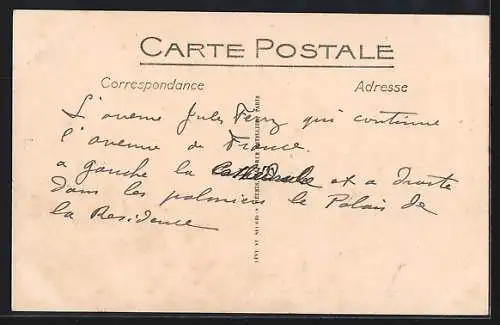 CARTE POSTALE
Correspondance
Adresse
L'avenue Jules Ferry qui continue
l'avenue de France.
a gauche la Cathédrale et a Droite
dans les palmiers le Palais de
la Residence